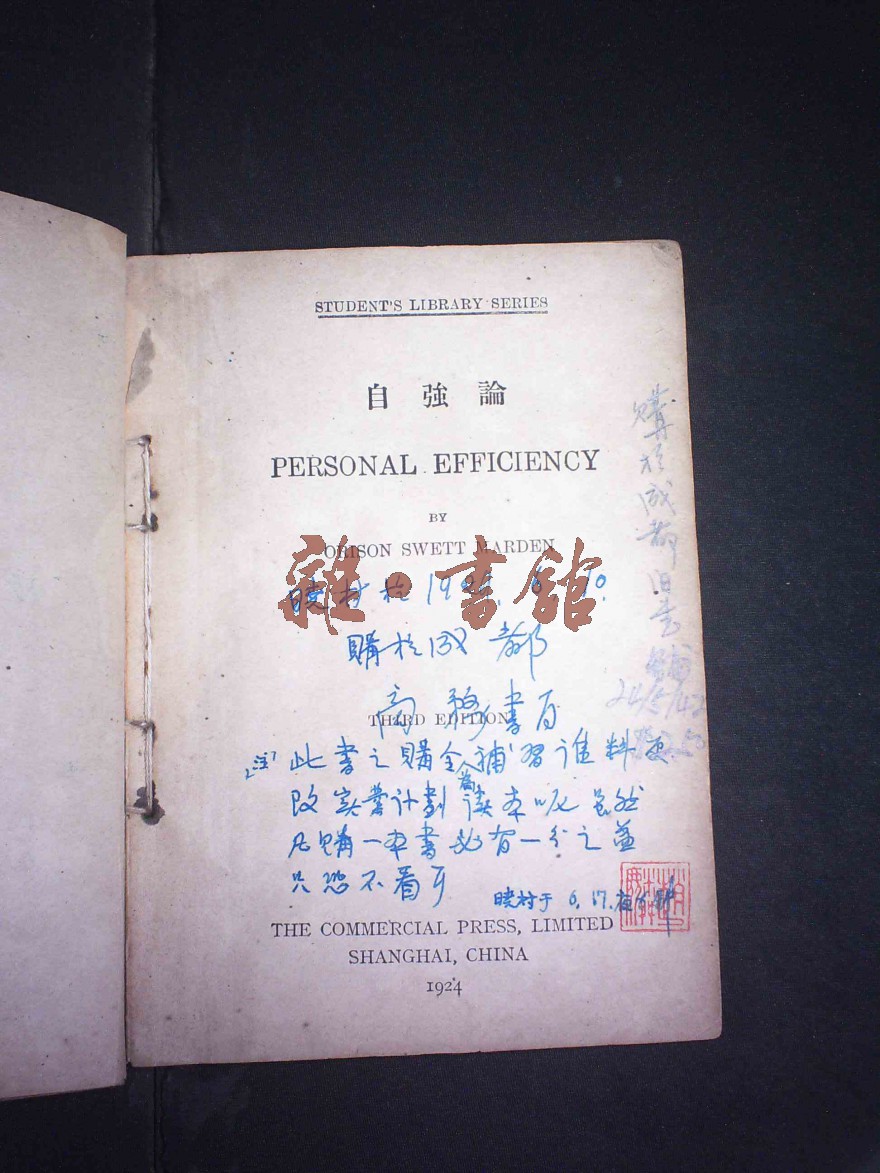 STUDENT'S LIBRARY SERIES
自強論
PERSONAL EFFICIENCY
BY
ORISON SWETT MARDEN
雜·書館
曉村於19
購於成都
商務書
THIRD EDITION
此書之購全補習進料
改實業計劃為讀本呢 虽然
凡購一本書必有一分之益
只恐不看耳
曉村于 6.17.夜
THE COMMERCIAL PRESS, LIMITED
SHANGHAI, CHINA
1924
購於成都旧書
24/5/42